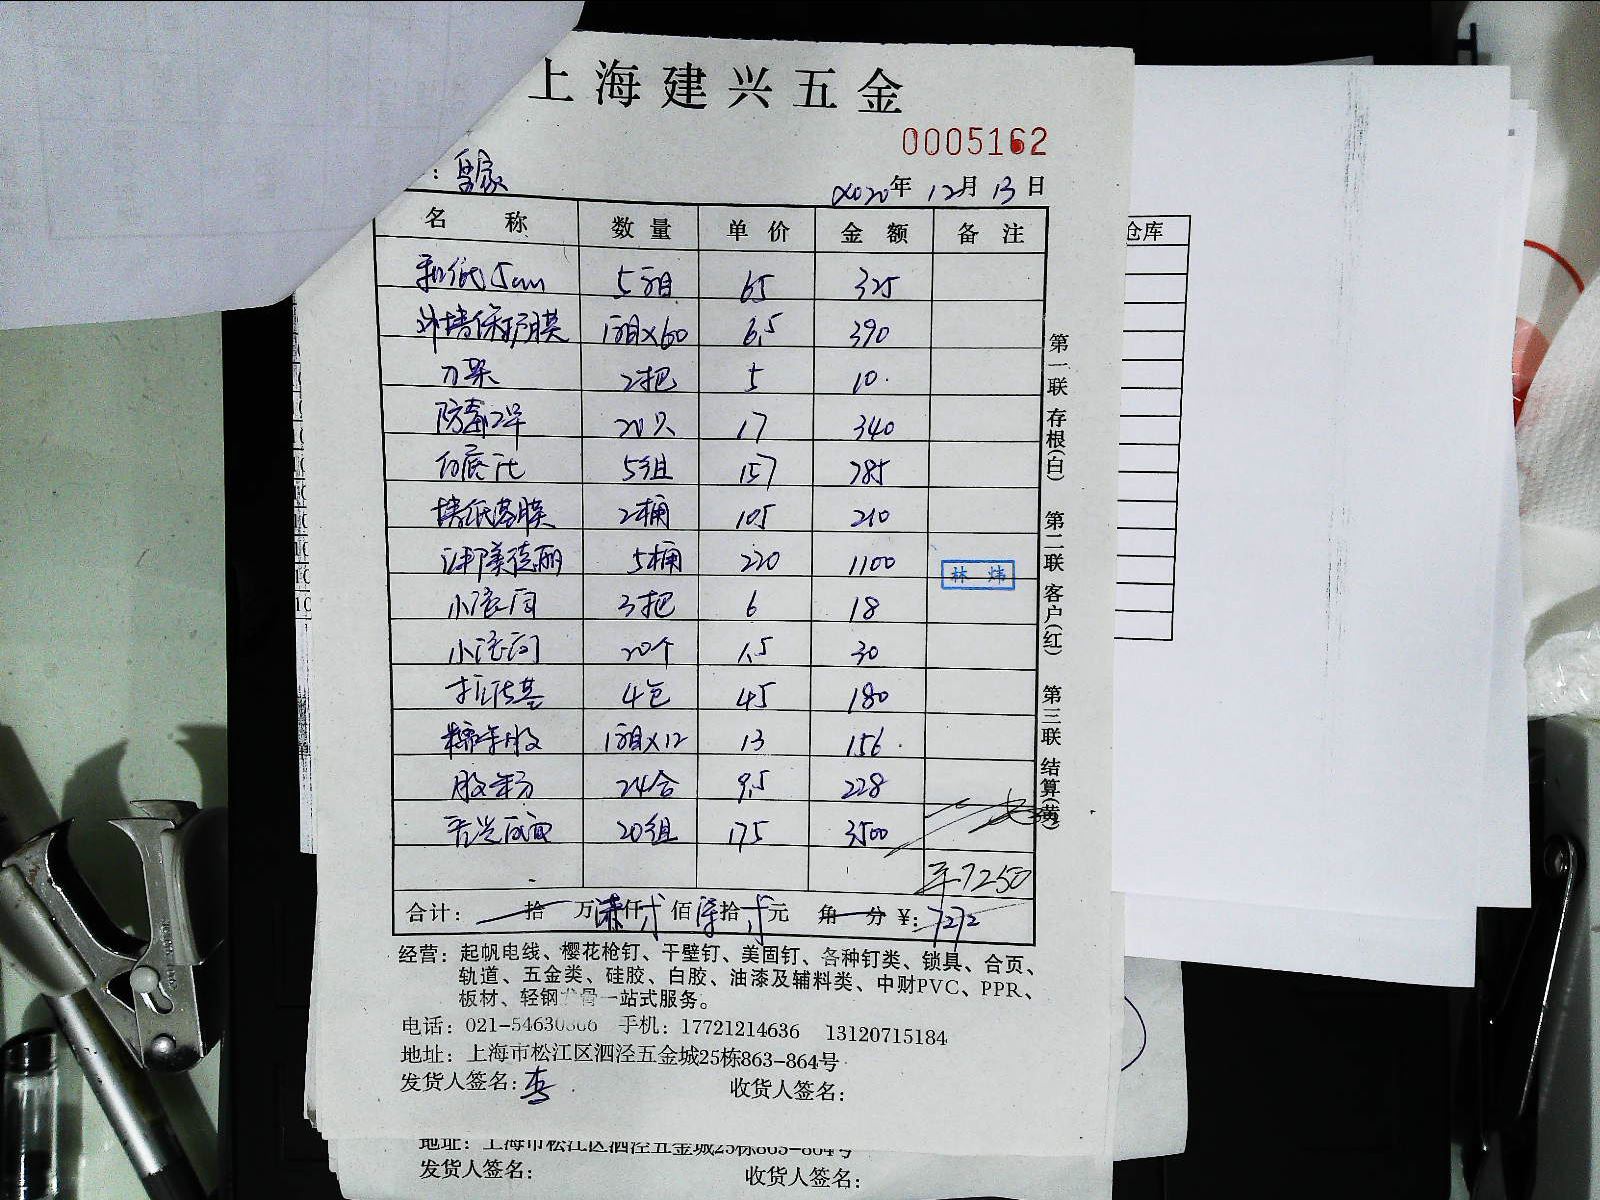 上海建兴五金
0005162
2020年 12月 13日
名称 数量 单价 金额 备注
仓库
5cm 5 65 325
外墙保护膜 1箱×60 6.5 390
刀架 2把 5 10
防毒口罩 20只 17 340
5组 157 785
墙纸基膜 2桶 105 210
5桶 220 1100
林炜
小滚筒 3把 6 18
小滚筒 20个 1.5 30
4包 45 180
糯米胶 1箱×12 13 156
胶粉 24合 9.5 228
20组 175 3500
¥7250
合计: 拾 万 柒仟 贰佰 柒拾 贰元 角 分 ¥: 7272
第一联 存根(白) 第二联 客户(红) 第三联 结算(黄)
经营: 起帆电线、樱花枪钉、干壁钉、美固钉、各种钉类、锁具、合页、
轨道、五金类、硅胶、白胶、油漆及辅料类、中财PVC、PPR、
板材、轻钢龙骨一站式服务。
电话: 021-54630866 手机: 17721214636 13120715184
地址: 上海市松江区泗泾五金城25栋863-864号
发货人签名: 李 收货人签名:
地址: 上海市松江区泗泾五金城25栋863-864号
发货人签名: 收货人签名: